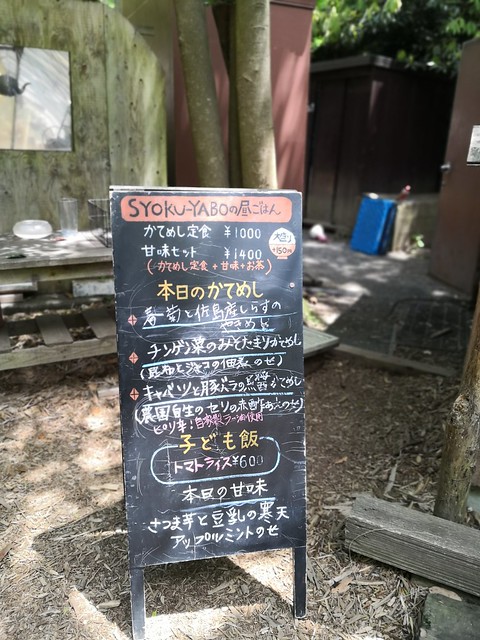 SYOKU-YABOの昼ごはん
かてめし定食 ¥1000
甘味セット ¥1400
大盛り +150円
(かてめし定食+甘味+お茶)
本日のかてめし
春菊と佐島産しらすの
やきめし
チンゲン菜のみそたまりかてめし
(昆布とジャコの佃煮のせ)
キャベツと豚バラの黒酢かてめし
(農園自生のセリの赤酢あえのせ)
ピリ辛!自家製ラー油使用
子ども飯
トマトライス¥600
本日の甘味
さつま芋と豆乳の寒天
アップルミントのせ